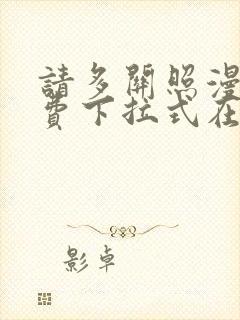 請多關照漫
費下拉式在
影卓